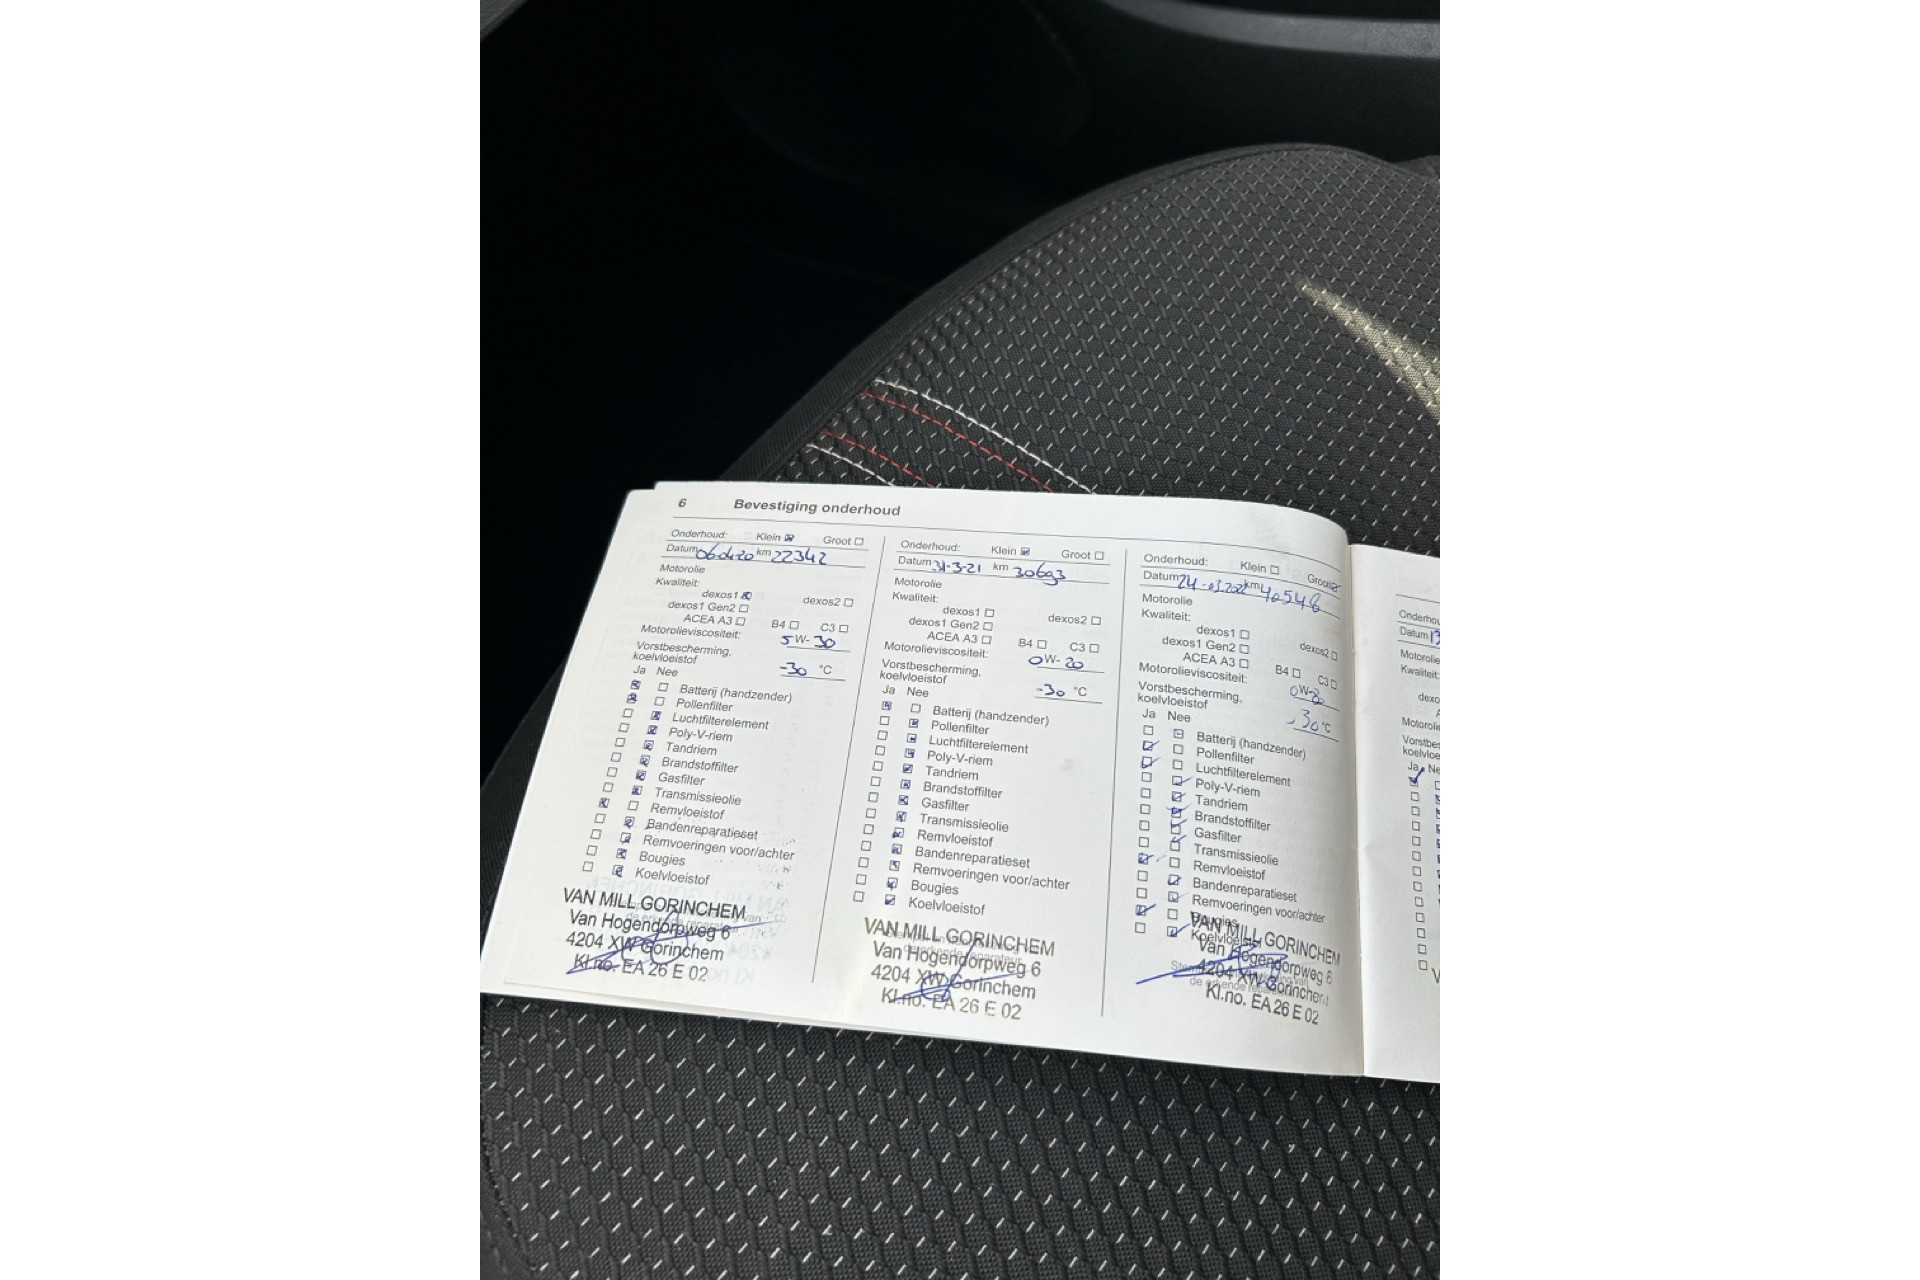 6 Bevestiging onderhoud
Onderhoud: Klein Groot
Datum 06-04-20 km 22342
Motorolie
Kwaliteit:
dexos1 dexos2
dexos1 Gen2
ACEA A3 B4 C3
Motorolieviscositeit: 5W-30
Vorstbescherming,
koelvloeistof -30 °C
Ja Nee
Batterij (handzender)
Pollenfilter
Luchtfilterelement
Poly-V-riem
Tandriem
Brandstoffilter
Gasfilter
Transmissieolie
Remvloeistof
Bandenreparatieset
Remvoeringen voor/achter
Bougies
Koelvloeistof
VAN MILL GORINCHEM
Van Hogendorpweg 6
4204 XW Gorinchem
Kl.no. EA 26 E 02
Onderhoud: Klein Groot
Datum 31-3-21 km 30693
Motorolie
Kwaliteit:
dexos1 dexos2
dexos1 Gen2
ACEA A3 B4 C3
Motorolieviscositeit: 0W-20
Vorstbescherming,
koelvloeistof -30 °C
Ja Nee
Batterij (handzender)
Pollenfilter
Luchtfilterelement
Poly-V-riem
Tandriem
Brandstoffilter
Gasfilter
Transmissieolie
Remvloeistof
Bandenreparatieset
Remvoeringen voor/achter
Bougies
Koelvloeistof
VAN MILL GORINCHEM
Van Hogendorpweg 6
4204 XW Gorinchem
Kl.no. EA 26 E 02
Onderhoud: Klein Groot
Datum km 40546
Motorolie
Kwaliteit:
dexos1 dexos2
dexos1 Gen2
ACEA A3 B4 C3
Motorolieviscositeit:
Vorstbescherming,
koelvloeistof -30 °C
Ja Nee
Batterij (handzender)
Pollenfilter
Luchtfilterelement
Poly-V-riem
Tandriem
Brandstoffilter
Gasfilter
Transmissieolie
Remvloeistof
Bandenreparatieset
Remvoeringen voor/achter
Bougies
Koelvloeistof
VAN MILL GORINCHEM
Van Hogendorpweg 6
4204 XW Gorinchem
Kl.no. EA 26 E 02
Datum
Kwaliteit:
Ja